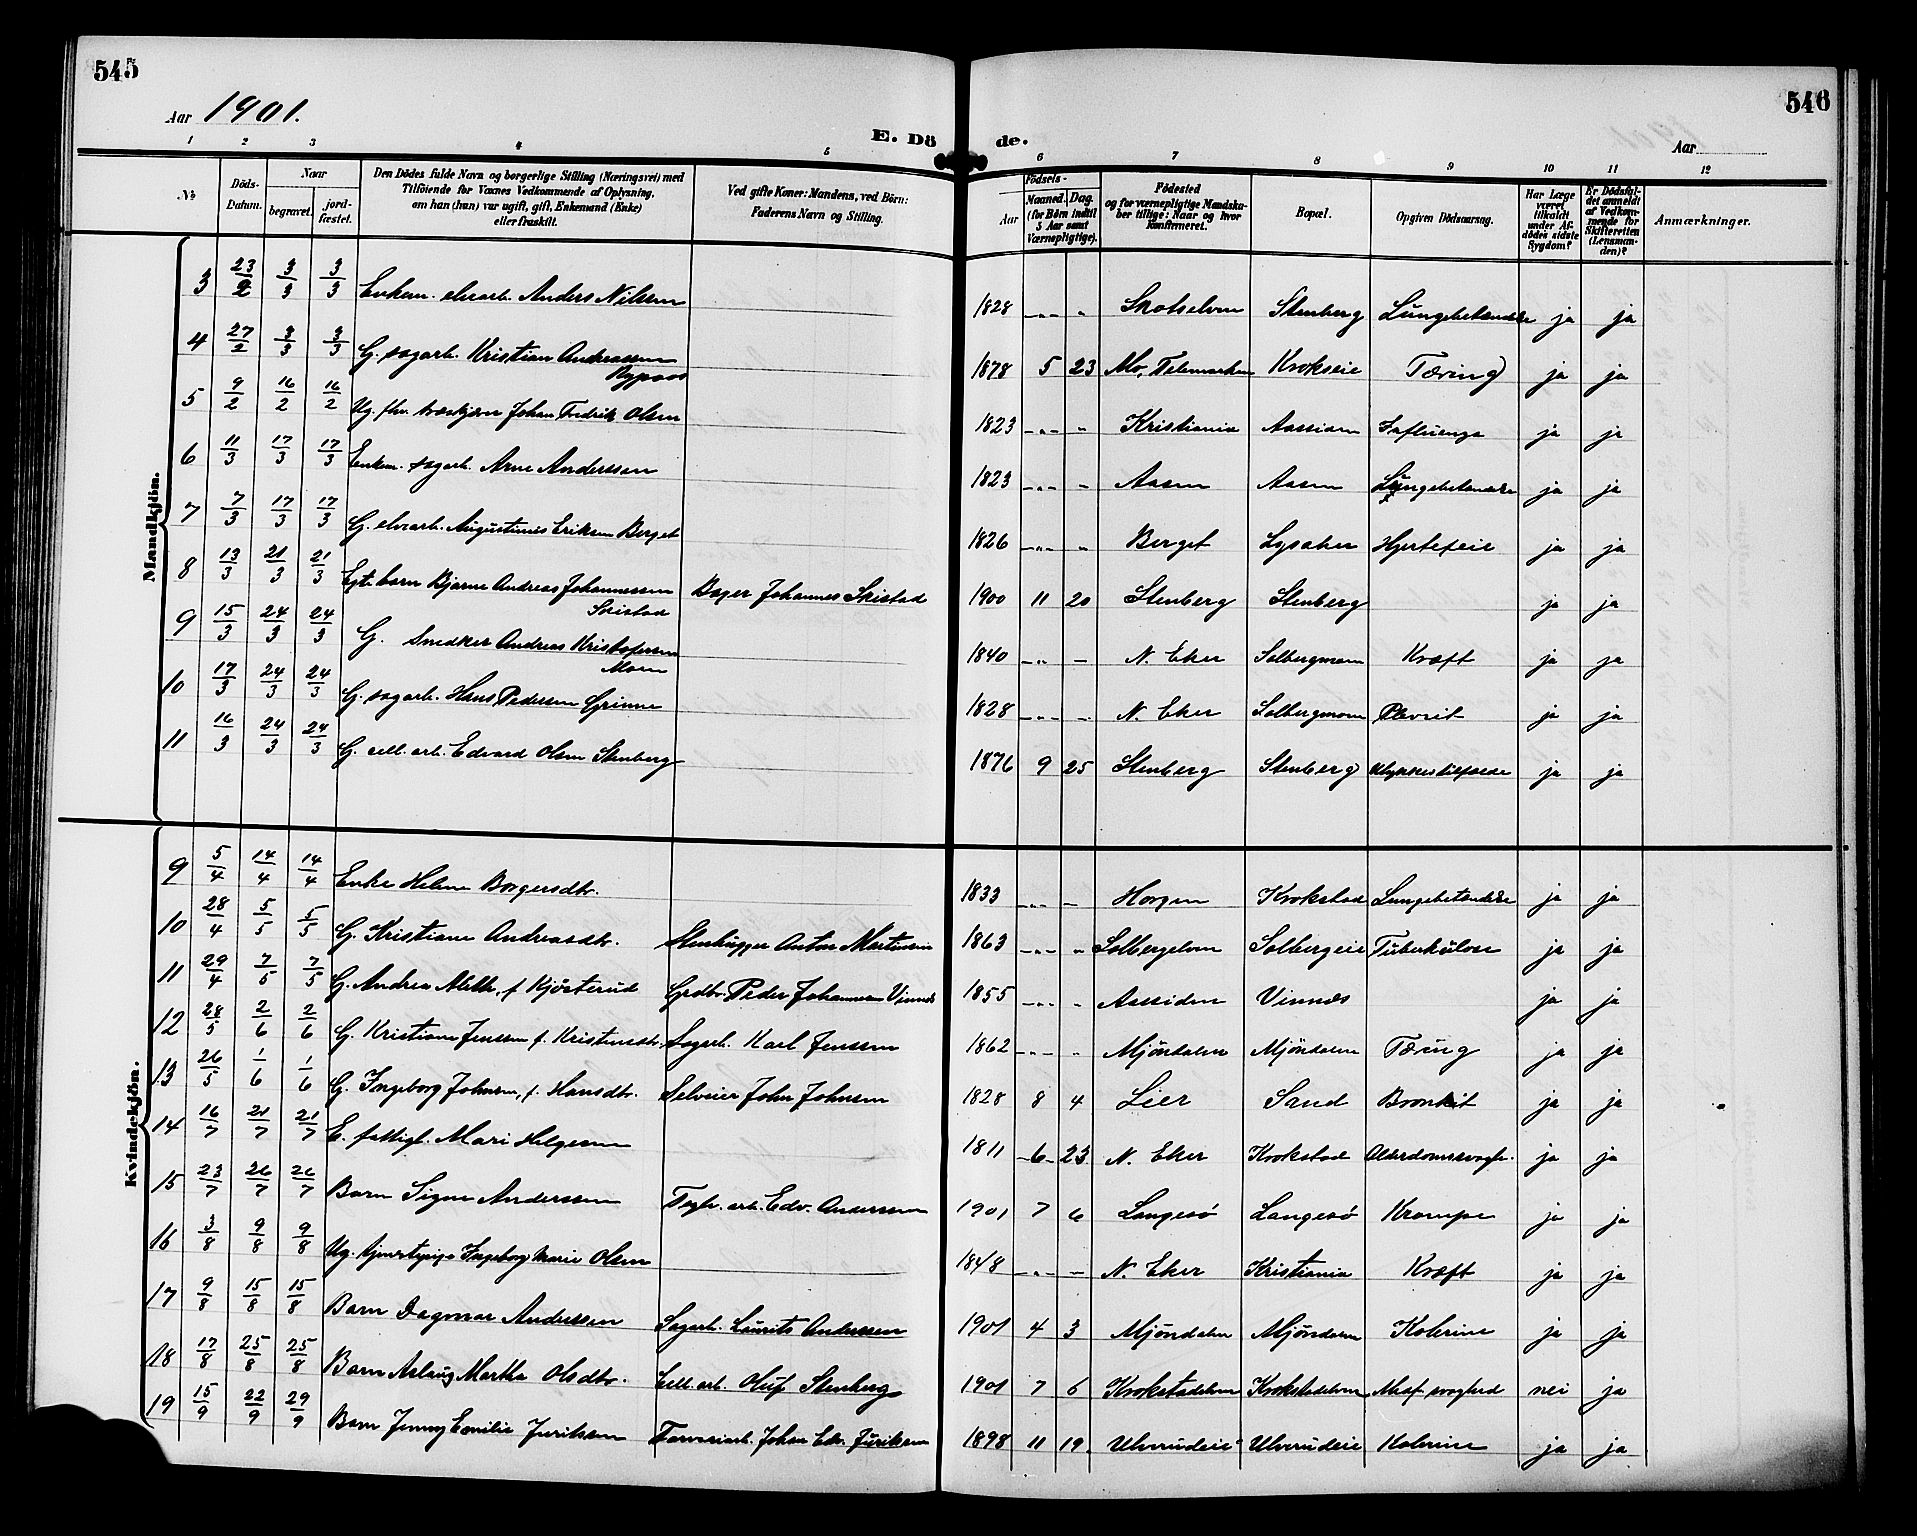 545
546
Aar 1901.
E. Dö de.
Aar
1 2 3 4 5 6 7 8 9 10 11 12
No
Döds-Datum.
Naar
begravet.
jord-fæstet.
Den Dödes fulde Navn og borgerlige Stilling (Næringsvei) med
Tilföiende for Voxnes Vedkommende af Oplysning,
om han (hun) var ugift, gift, Enkemand (Enke)
eller fraskilt.
Ved gifte Koner: Mandens, ved Börn:
Faderens Navn og Stilling.
Födsels-
Aar
Maaned.
Dag.
(for Börn indtil
5 Aar samt
Værnepligtige).
Födested
og for værnepligtige Mandska-
ber tillige: Naar og hvor
konfirmeret.
Bopæl.
Opgiven Dödsaarsag.
Har Læge
været
tilkaldt
under Af-
dödes sidste
Sygdom?
Er Dödsfal-
det anmeldt
af Vedkom-
mende for
Skifteretten
(Lensman-
den)?
Anmærkninger.
Mandkjön.
3 23/2 3/3 3/3 Enkem. elvearb. Anders Nilssen 1828 -"- " Skotselven Stenberg Lungebetændelse ja ja
4 27/2 3/3 3/3 G. sagarb. Kristian Andreassen 1878 5 23 Mo, Telemarken Krokseie Tæring ja ja
5 9/2 16/2 16/2 Ug. fhv. træskjærer Johan Fredrik Olsen 1823 -"- " Kristiania Aassiden Influenza ja ja
6 11/3 17/3 17/3 Enkem. sagarb. Arne Anderssen 1823 -"- - Aasen Aasen Lungebetændelse ja ja
7 7/3 17/3 17/3 G. elvearb. Augustinus Eriksen Berget 1826 -"- " Berget Lysaker Hjertefeil ja ja
8 13/3 21/3 21/3 Egt. barn Bjarne Andreas Johannessen Skistad Bager Johannes Skistad 1900 11 20 Stenberg Stenberg ja ja
9 15/3 24/3 24/3 G. Snedker Andreas Kristofersen Moen 1840 -"- - N. Eker Solbergmoen Kræft ja ja
10 17/3 24/3 24/3 G. sagarb. Hans Pedersen 1828 -"- - N. Eker Solbergmoen Plevrit ja ja
11 16/3 24/3 24/3 G. cell. arb. Edvard Olsen Stenberg 1876 9 25 Stenberg Stenberg Ulykkestilfælde ja ja
Kvindekjön.
9 5/4 14/4 14/4 Enke Helene Borgersdtr. 1833 -"- - Horgen Krokstad Lungebetændelse ja ja
10 28/4 5/5 5/5 G. Kristiane Andreasdtr. Stenhugger Anton Martinsen 1863 -"- " Solbergelven Solbergeie Tuberkulose ja ja
11 29/4 7/5 7/5 G. Andrea f. Kjösterud Grdbr. Peder Johannesen Vinnes 1855 -"- " Aassiden Vinnes ja ja
12 28/5 2/6 2/6 G. Kristiane Jenssen f. Kristensdtr. Sagarb. Karl Jenssen 1862 -"- " Mjöndalen Mjöndalen Tæring ja ja
13 26/5 1/6 1/6 G. Ingeborg Johnsen, f. Hansdtr. Selveier John Johnsen 1828 8 4 Lier Sand Bronkit ja ja
14 16/7 21/7 21/7 E. fattigl. Mari Helgesen 1811 6 23 N. Eker Krokstad Alderdomssvagh. ja ja
15 23/7 26/7 26/7 Barn Signe Anderssen Teglv. arb. Edv. Anderssen 1901 7 6 Langesö Langesö Krampe ja ja
16 3/8 9/8 9/8 Ug. tjenestepige Ingeborg Marie Olsen 1848 -"- - N. Eker Kristiania Kræft ja ja
17 9/8 15/8 15/8 Barn Dagmar Anderssen Sagarb. Laurits Anderssen 1901 4 3 Mjöndalen Mjöndalen Kolerine ja ja
18 17/8 25/8 25/8 Barn Aslaug Martha Olsdtr. Cell. arb. Oluf Stenberg 1901 7 6 Krokstadelven Krokstadelven Medf. svaghed nei ja
19 15/9 22/9 29/9 Barn Jenny Emilie Juriksen Farveriarb. Johan Edv. Juriksen 1898 11 19. Ulverudeie Ulverudeie Kolerine ja ja